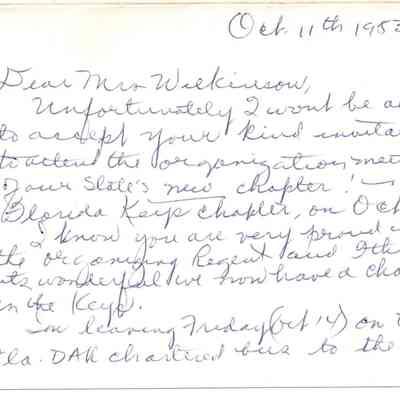 Oct. 11th 1983
Dear Mrs Wilkinson,
Unfortunately I wont be a
to accept your kind invita
to attend the organization mee
of our State's new chapter! —
Florida Keys Chapter, on Oct
I know you are very proud
the organizing Regent and I th
its wonderful we now have a cha
in the Keys.
I'm leaving Friday (Oct 14) on
Fla. DAR chartered bus to the